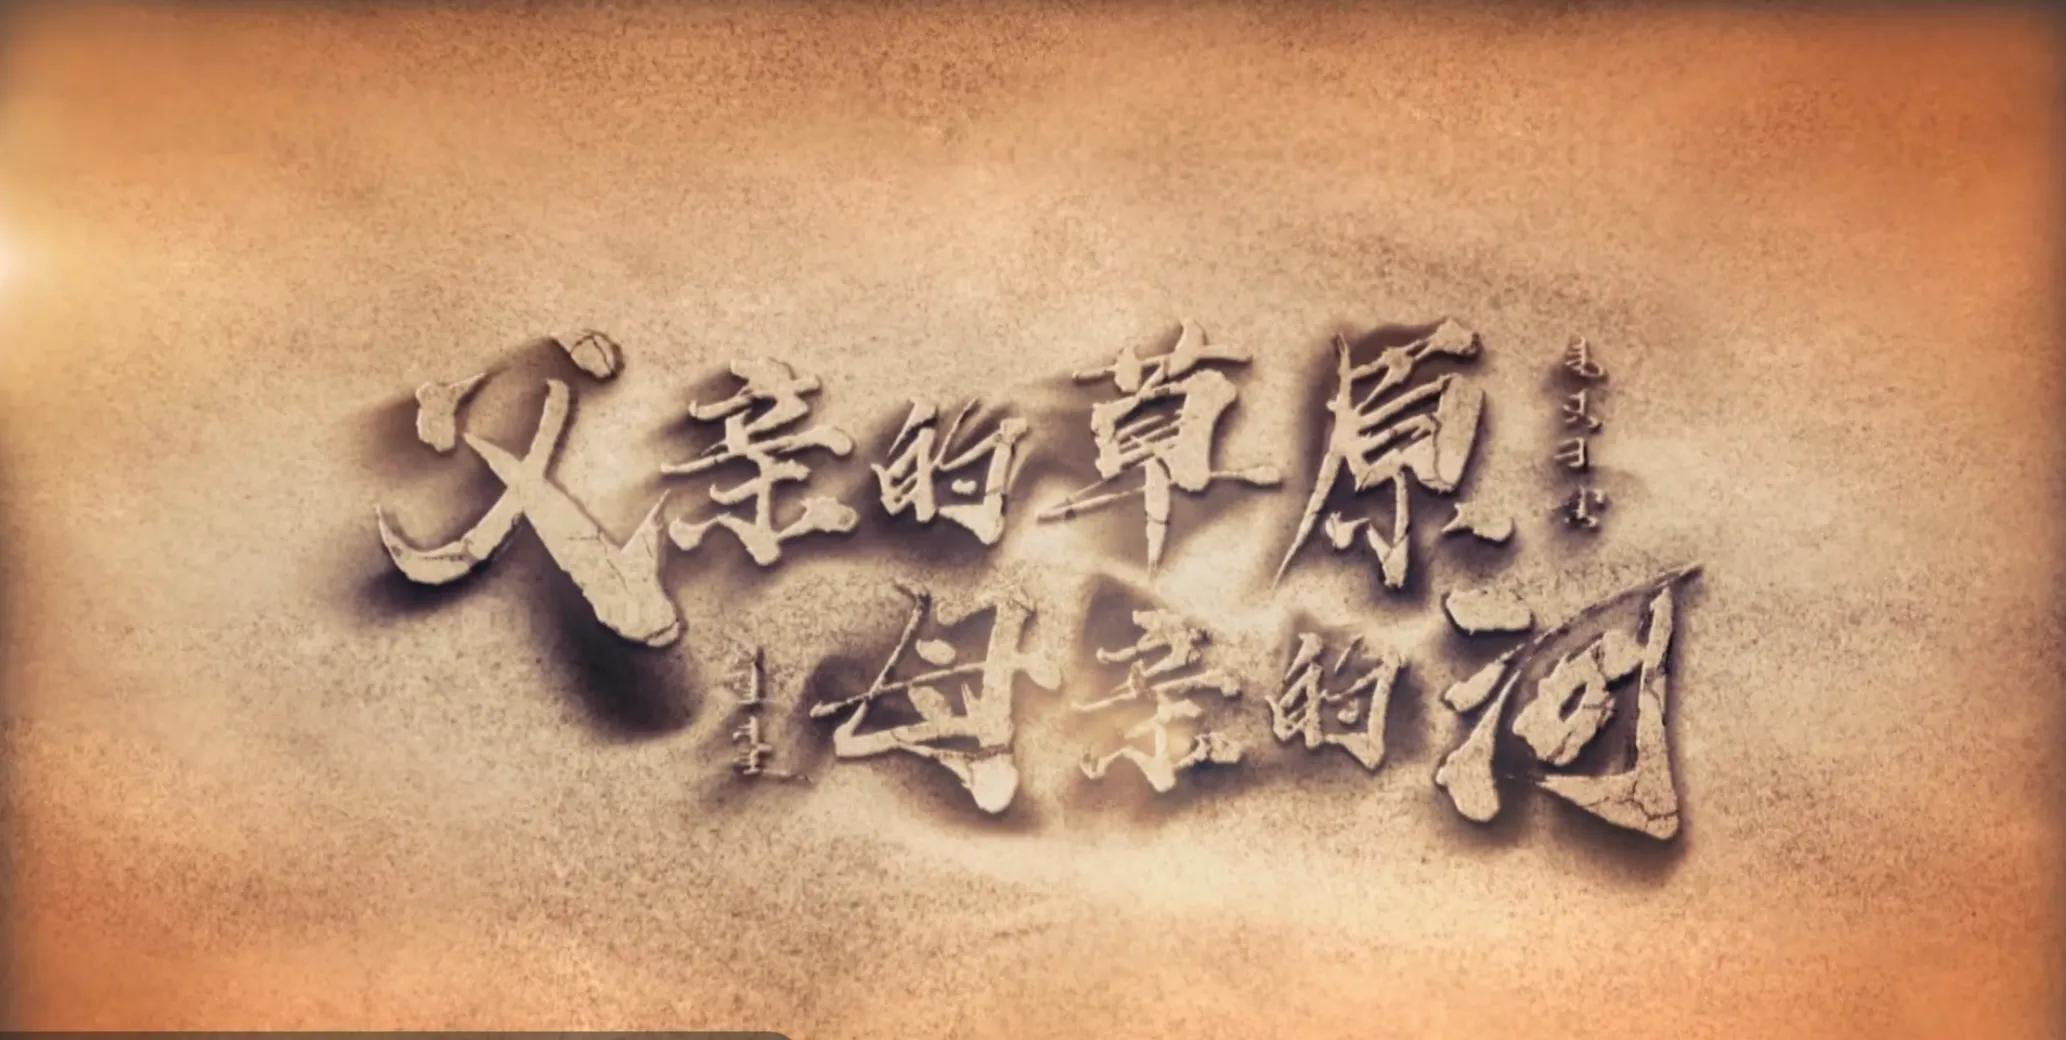 父亲的草原
母亲的河